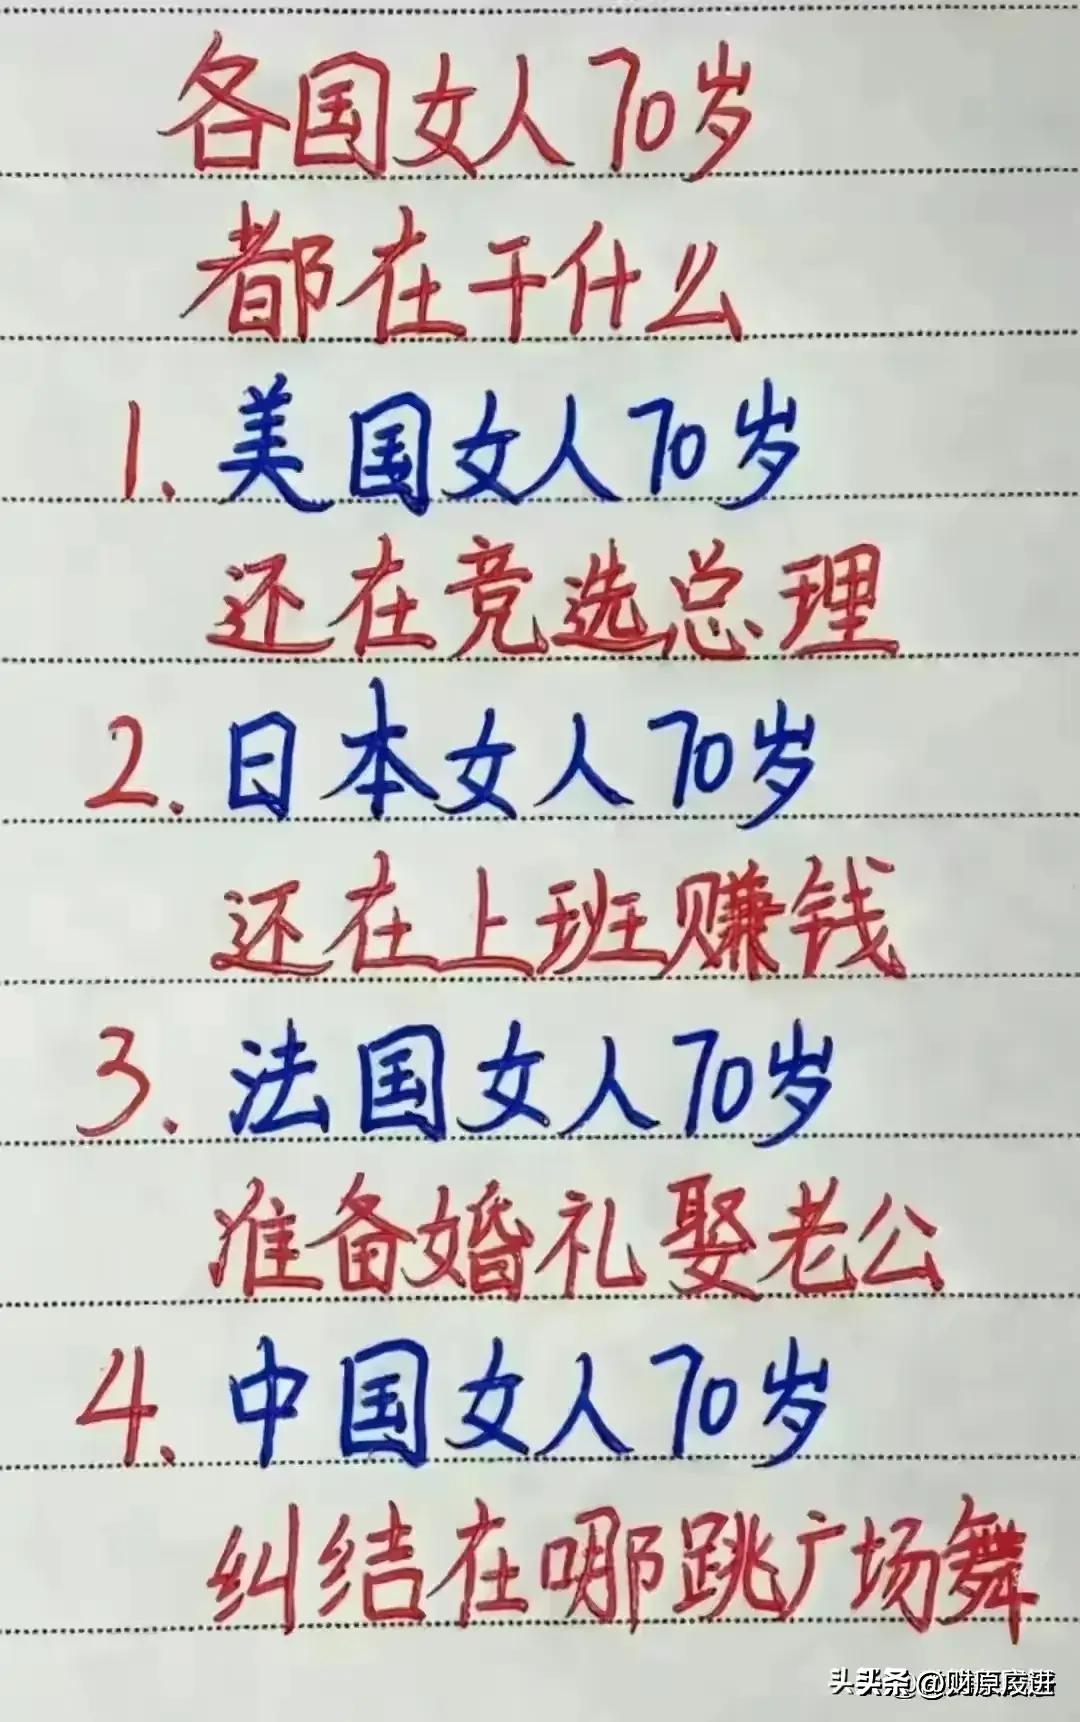 各国女人70岁
都在干什么
1. 美国女人70岁
还在竞选总理
2. 日本女人70岁
还在上班赚钱
3. 法国女人70岁
准备婚礼娶老公
4. 中国女人70岁
纠结在哪跳广场舞
头条 @财原